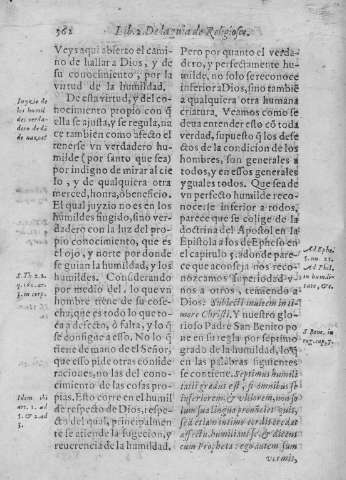 562 Lib. 2. De la guia de Religiosos.
Veys aqui abierto el cami-
no de hallar a Dios, y de
su conocimiento, por la
virtud de la humildad.
De esta virtud, y del co-
nocimiento propio con q̃
ella se ajusta, y se regula, na
ce tambien como afecto el
tenerse vn verdadero hu-
milde (por santo que sea)
por indigno de mirar al cie
lo, y de qualquiera otra
merced, honra, ò beneficio.
El qual juyzio no es en los
humildes fingido, sino ver-
dadero con la luz del pro-
pio conocimiento, que es
el ojo, y norte por donde
se guian la humildad, y los
humildes. Considerando
por medio del, lo que vn
hombre tiene de su cose-
cha, que es todo lo que to-
ca a defecto, ò falta, y lo q̃
se consigue a esso. No lo q̃
tiene de mano de el Señor,
que esso pide otras conside
raciones, no las del cono-
cimiento de las cosas pro-
pias. Esto corre en el humil
de respecto de Dios, respe-
cto del qual, principalmen-
te se atiende la sugecion, y
reuerencia de la humildad.
Juyzio de
los humil
des verda-
dero de dō
de nazca.
S. Th. 2. 2.
q. 161. ar.
in corp.
Idem ibi
art. 1. ad
5. & 2. ad
3.
Pero por quanto el verda-
dero, y perfectamente hu-
milde, no solo se reconoce
inferior a Dios, sino tambiē
a qualquiera otra humana
criatura. Veamos como se
deua entender esto cō toda
verdad, supuesto q̃ los defe-
ctos de la condicion de los
hombres, son generales a
todos, y en essos generales
yguales todos. Que sea de
vn perfecto humilde reco-
nocerse inferior a todos,
parece que se colige de la
doctrina del Apostol en la
Epistola a los de Epheso en
el capitulo 5. adonde pare-
ce que aconseja nos reco-
nozcamos superioridad v-
nos a otros, temiendo a
Dios: Subiecti inuicem in ti-
more Christi. Y nuestro glo-
rioso Padre San Benito po
ne en su regla por septimo
grado de la humildad, lo q̃
en las palabras siguientes
se contiene. Septimus humili
tatis gradus est, si omnibus se
inferiorem, & viliorem, non so
lum sua lingua pronūciet quis,
sed etiam intimo cordis credat
affectu, humilians se, & dicens
cum Propheta: ego autem sum
vermis,
Ad Ephe.
5. nu. 21.
Ad Phil.
S. Bene. in
reg. cap. 7.